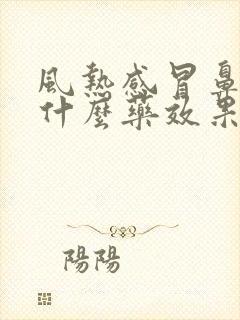 風熱感冒鼻
什麼藥效果
陽陽